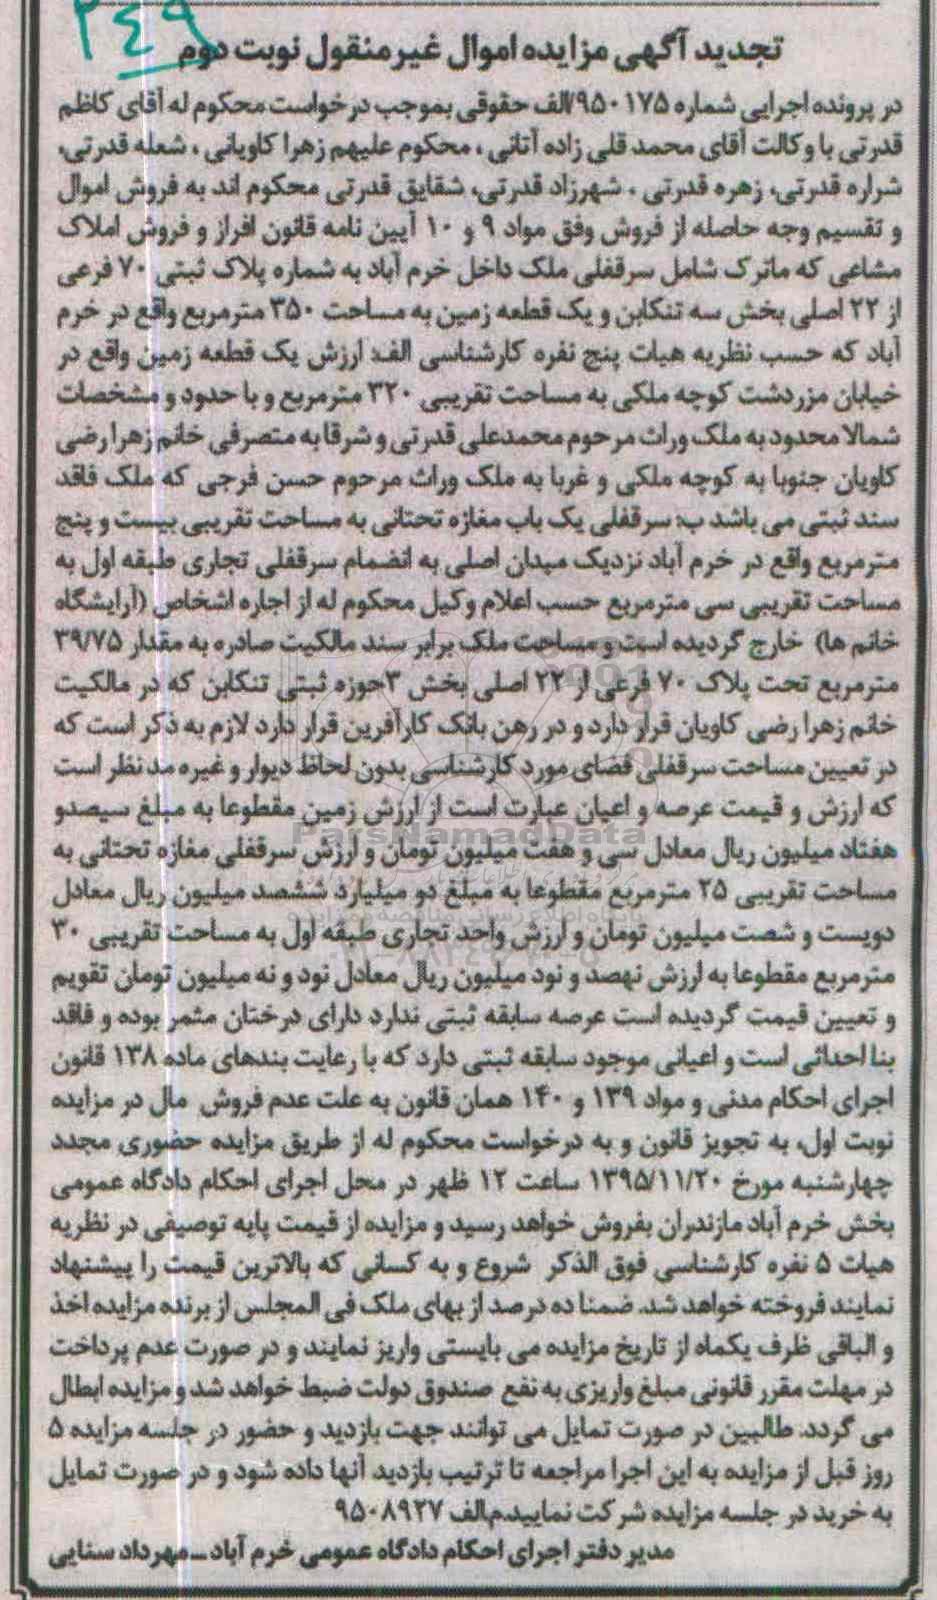 ۲۴۹
تجدید آگهی مزایده اموال غیرمنقول نوبت دوم
در پرونده اجرایی شماره ۹۵۰۱۷۵/الف حقوقی بموجب درخواست محکوم له آقای کاظم
قدرتی با وکالت آقای محمد قلی زاده آتانی ، محکوم علیهم زهرا کاویانی ، شعله قدرتی،
شراره قدرتی، زهره قدرتی ، شهرزاد قدرتی، شقایق قدرتی محکوم اند به فروش اموال
و تقسیم وجه حاصله از فروش وفق مواد ۹ و ۱۰ آیین نامه قانون افراز و فروش املاک
مشاعی که ماترک شامل سرقفلی ملک داخل خرم آباد به شماره پلاک ثبتی ۷۰ فرعی
از ۲۲ اصلی بخش سه تنکابن و یک قطعه زمین به مساحت ۳۵۰ مترمربع واقع در خرم
آباد که حسب نظریه هیات پنج نفره کارشناسی الف: ارزش یک قطعه زمین واقع در
خیابان مزردشت کوچه ملکی به مساحت تقریبی ۳۲۰ مترمربع و با حدود و مشخصات
شمالا محدود به ملک وراث مرحوم محمدعلی قدرتی و شرقا به متصرفی خانم زهرا رضی
کاویان جنوبا به کوچه ملکی و غربا به ملک وراث مرحوم حسن فرجی که ملک فاقد
سند ثبتی می باشد ب: سرقفلی یک باب مغازه تحتانی به مساحت تقریبی بیست و پنج
مترمربع واقع در خرم آباد نزدیک میدان اصلی به انضمام سرقفلی تجاری طبقه اول به
مساحت تقریبی سی مترمربع حسب اعلام وکیل محکوم له از اجاره اشخاص (آرایشگاه
خانم ها) خارج گردیده است و مساحت ملک برابر سند مالکیت صادره به مقدار ۳۹/۷۵
مترمربع تحت پلاک ۷۰ فرعی از ۲۲ اصلی بخش ۳حوزه ثبتی تنکابن که در مالکیت
خانم زهرا رضی کاویان قرار دارد و در رهن بانک کارآفرین قرار دارد لازم به ذکر است که
در تعیین مساحت سرقفلی فضای مورد کارشناسی بدون لحاظ دیوار و غیره مد نظر است
که ارزش و قیمت عرصه و اعیان عبارت است از ارزش زمین مقطوعا به مبلغ سیصدو
هفتاد میلیون ریال معادل سی و هفت میلیون تومان و ارزش سرقفلی مغازه تحتانی به
مساحت تقریبی ۲۵ مترمربع مقطوعا به مبلغ دو میلیارد ششصد میلیون ریال معادل
دویست و شصت میلیون تومان و ارزش واحد تجاری طبقه اول به مساحت تقریبی ۳۰
مترمربع مقطوعا به ارزش نهصد و نود میلیون ریال معادل نود و نه میلیون تومان تقویم
و تعیین قیمت گردیده است عرصه سابقه ثبتی ندارد دارای درختان مثمر بوده و فاقد
بنا احداثی است و اعیانی موجود سابقه ثبتی دارد که با رعایت بندهای ماده ۱۳۸ قانون
اجرای احکام مدنی و مواد ۱۳۹ و ۱۴۰ همان قانون به علت عدم فروش مال در مزایده
نوبت اول، به تجویز قانون و به درخواست محکوم له از طریق مزایده حضوری مجدد
چهارشنبه مورخ ۱۳۹۵/۱۱/۲۰ ساعت ۱۲ ظهر در محل اجرای احکام دادگاه عمومی
بخش خرم آباد مازندران بفروش خواهد رسید و مزایده از قیمت پایه توصیفی در نظریه
هیات ۵ نفره کارشناسی فوق الذکر شروع و به کسانی که بالاترین قیمت را پیشنهاد
نمایند فروخته خواهد شد. ضمنا ده درصد از بهای ملک فی المجلس از برنده مزایده اخذ
و الباقی ظرف یکماه از تاریخ مزایده می بایستی واریز نمایند و در صورت عدم پرداخت
در مهلت مقرر قانونی مبلغ واریزی به نفع صندوق دولت ضبط خواهد شد و مزایده ابطال
می گردد. طالبین در صورت تمایل می توانند جهت بازدید و حضور در جلسه مزایده ۵
روز قبل از مزایده به این اجرا مراجعه تا ترتیب بازدید آنها داده شود و در صورت تمایل
به خرید در جلسه مزایده شرکت نمایید.م/الف ۹۵۰۸۹۲۷
مدیر دفتر اجرای احکام دادگاه عمومی خرم آباد ــ مهرداد سنایی
ParsNamadData
پایگاه اطلاع رسانی مناقصه و مزایده